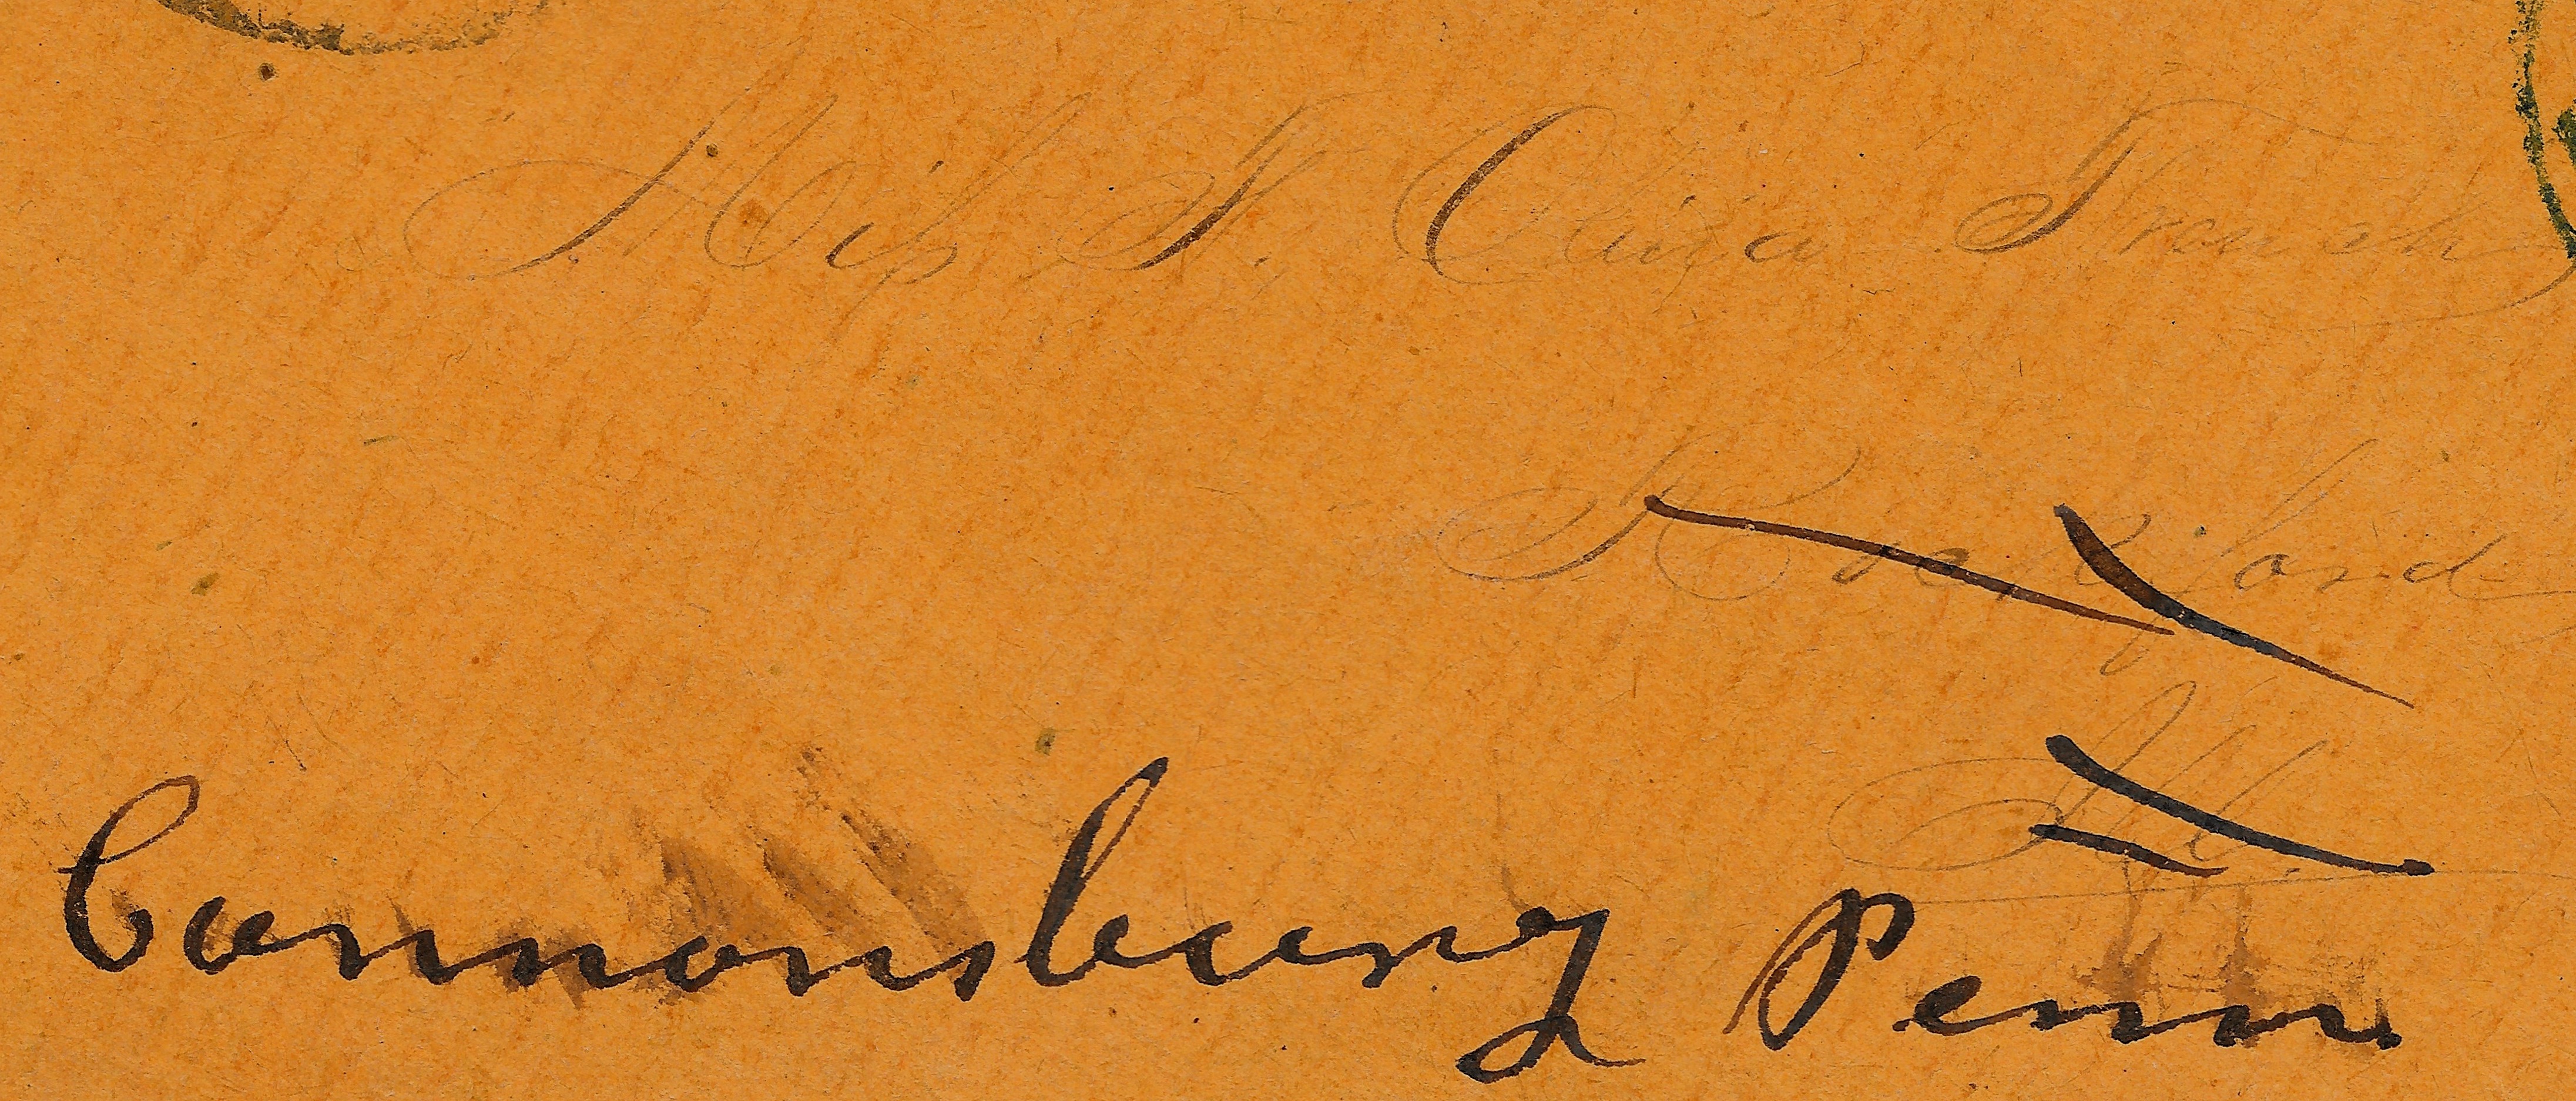 Miss F. Eliza French
Rockford
Ill.
Cannonsburg Penn.